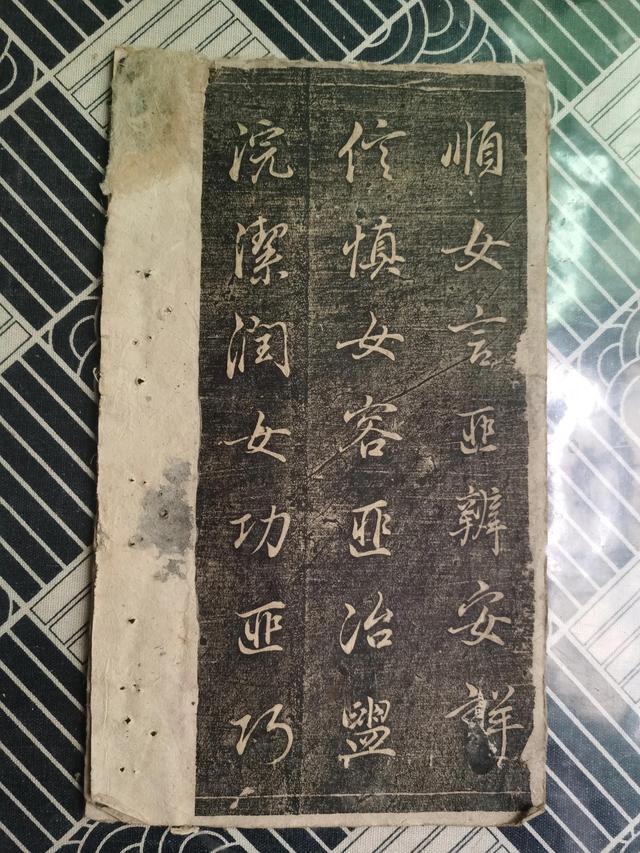 順女言匪辨安詳
信慎女容匪冶盥
浣潔潤女功匪巧